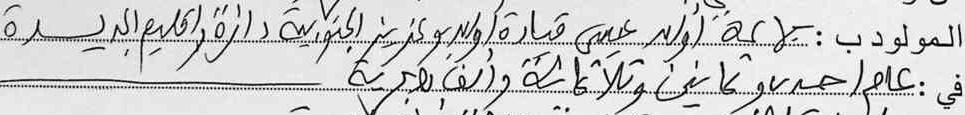 المولود ب: جماعة أولاد عيسى قيادة أولاد بوعزيز الجنوبية دائرة واقليم الجديدة
في: عام احدى وثمانين وثلاثمائة وألف هجرية